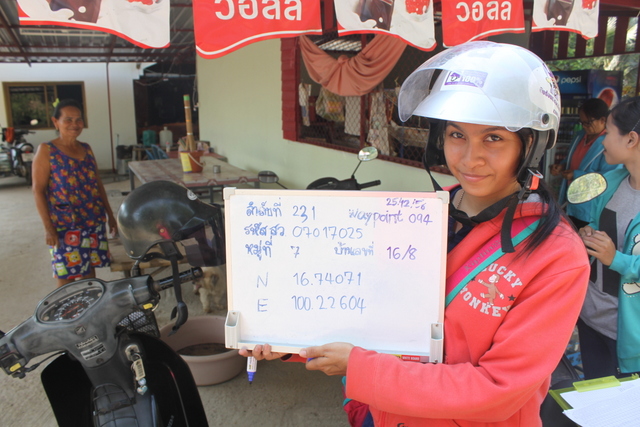 วอลล์
วอลล์
pepsi
25/12/56
ลำดับที่ 231 waypoint 094
รหัส สว 07017025
หมู่ที่ 7 บ้านเลขที่ 16/8
N 16.74071
E 100.22604
LUCKY
MONKEY